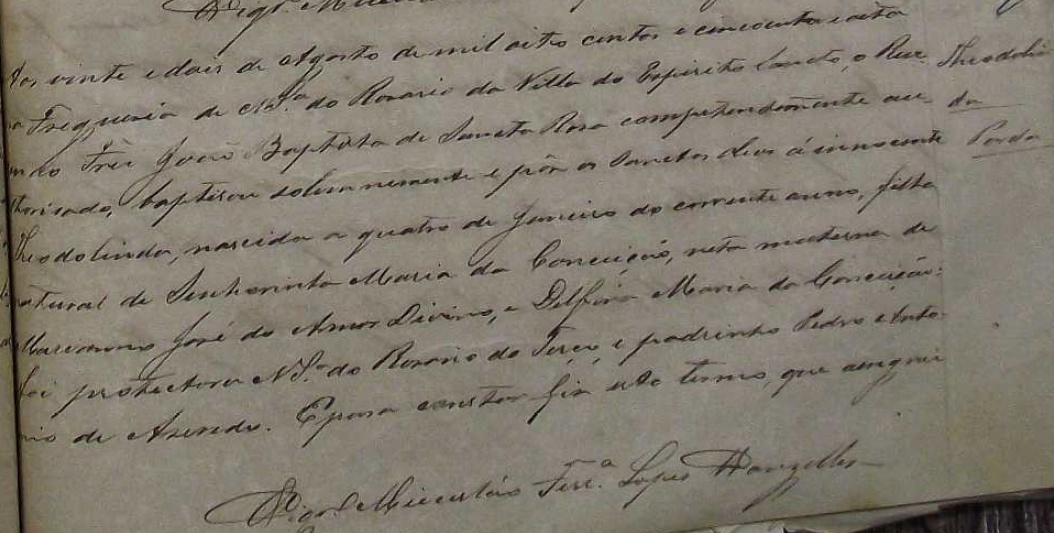 Vigr.º
Aos vinte e dois de Agosto de mil oito centos e cincoenta e oito
na Freguesia de N. S.ª do Rosario da Villa do Espirito Sancto, o Rev.
Theodolin
rendo Frei João Baptista de Sancta Rosa competentemente au-
da
thorisado, baptisou solemnemente e pôz os Sanctos oleos á innocente
Parda
Theodolinda, nascida a quatro de Janeiro do corrente anno, filha
natural de Senhorinha Maria da Conceição, neta materna de
José do Amor Divino, e Delfina Maria da Conceição:
foi protectora N. S.ª do Rosario do Terço, e padrinho Pedro Anto-
nio de Azeredo. E para constar fiz este termo, que assignei
Vigr.º Ferr.ª Lopes Wanzeller